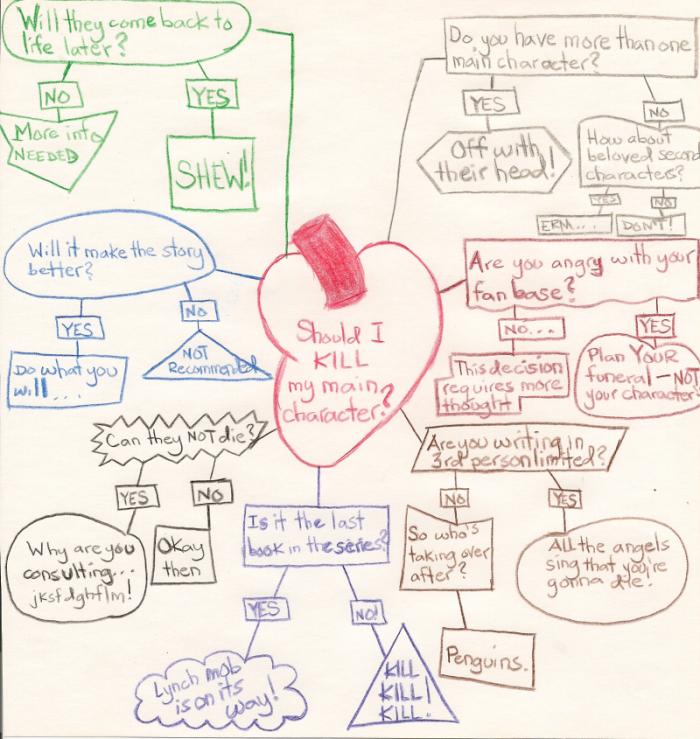 Will they come back to
life later?
NO
YES
More info
NEEDED
SHEW!
Do you have more than one
main character?
YES
NO
Off with
their head!
How about
beloved second
characters?
YES
NO
ERM....
DON'T!
Will it make the story
better?
YES
NO
Do what you
will....
NOT
Recommended
Should I
KILL
my main
character?
Are you angry with your
fan base?
NO...
YES
This decision
requires more
thought
Plan YOUR
funeral—NOT
your character
Can they NOT die?
YES
NO
Why are you
consulting...
jksfdghflm!
Okay
then
Is it the last
book in the series?
YES
NO!
Lynch mob
is on its
way!
KILL
KILL!
KILL.
Are you writing in
3rd person limited?
NO
YES
So who's
taking over
after?
Penguins.
All the angels
sing that you're
gonna die.